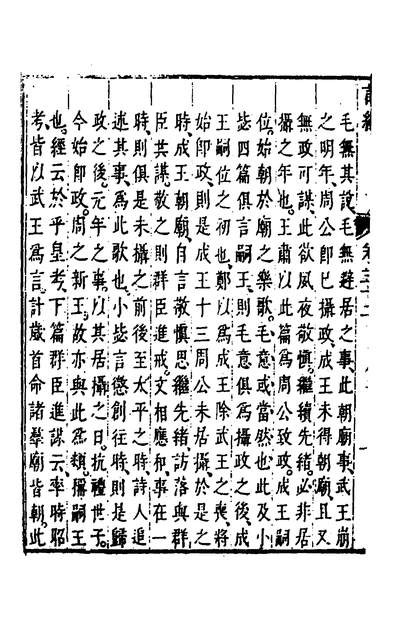 毛無其說毛無避居之事此朝廟事武王崩
之明年周公即已攝政成王未得朝廟且又
無政可謀此欲夙夜敬慎繼續先緒必非居
攝之年也王肅以此篇爲周公致政成王嗣
位始朝於廟之樂歌毛意或當然也此及小
毖四篇俱言嗣王則毛意俱爲攝政之後成
王嗣位之初也鄭以爲成王除武王之喪將
始即政則是成王十三周公未居攝於是之
時成王朝廟自言敬慎思繼先緒訪落與群
臣共謀敬之則群臣進戒文相應和事在一
時則俱是未攝之前後至太平之時詩人追
述其事爲此歌也小毖言懲創往時則是歸
政之後元年之事以其居攝之日抗禮世子
今始即政周之新王故亦與此爲類稱嗣王
也經云於乎皇考下篇群臣進謀云率時昭
考皆以武王爲言計歲首命諸羣廟皆朝此